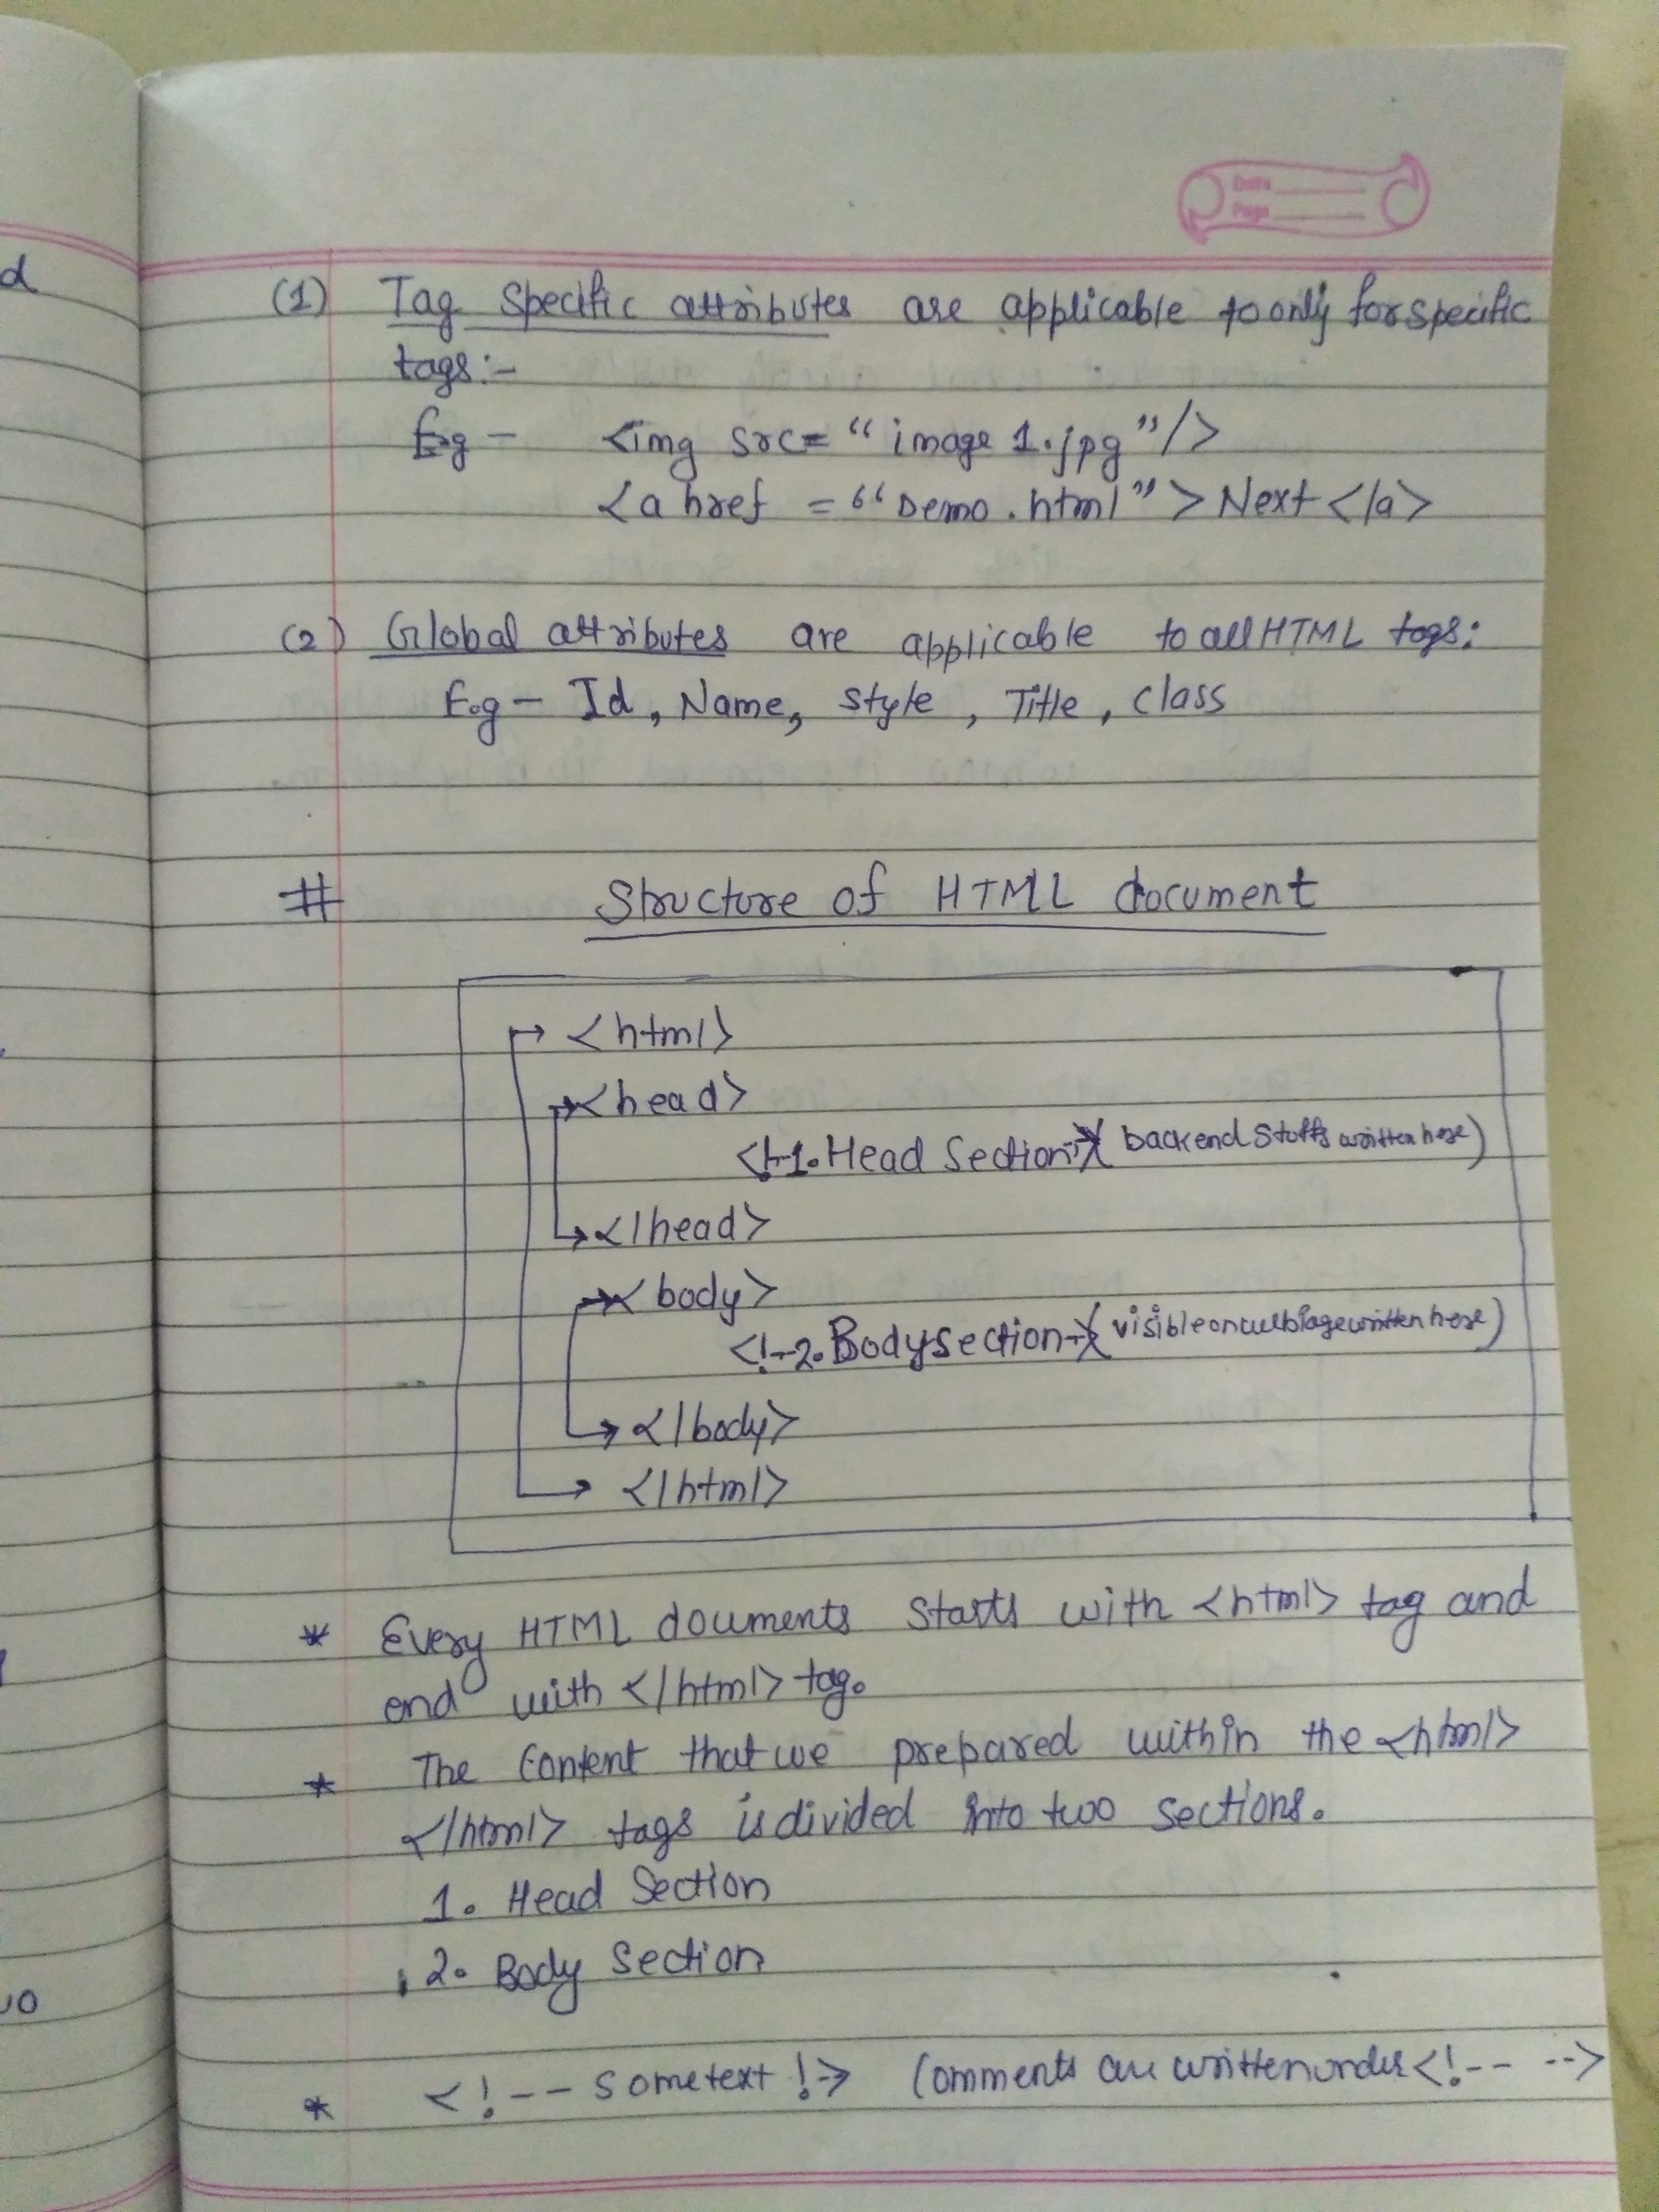 Date
Page
d
(1) Tag Specific attributes are applicable to only for specific
tags:-
E.g - <img src= "image 1.jpg"/>
<a href = "Demo.html"> Next </a>
(2) Global attributes are applicable to all HTML tags:
E.g - Id, Name, style, Title, class
# Structure of HTML document
<html>
<head>
<!-1. Head Section-> (backend stuffs written here)
</head>
<body>
<!--2. Body section-> (visible on web page written here)
</body>
</html>
* Every HTML douments starts with <html> tag and
end with </html> tag.
* The Content that we prepared within the <html>
</html> tags is divided into two sections.
1. Head Section
2. Body Section
* <!-- some text !-> Comments are written under <!-- -->